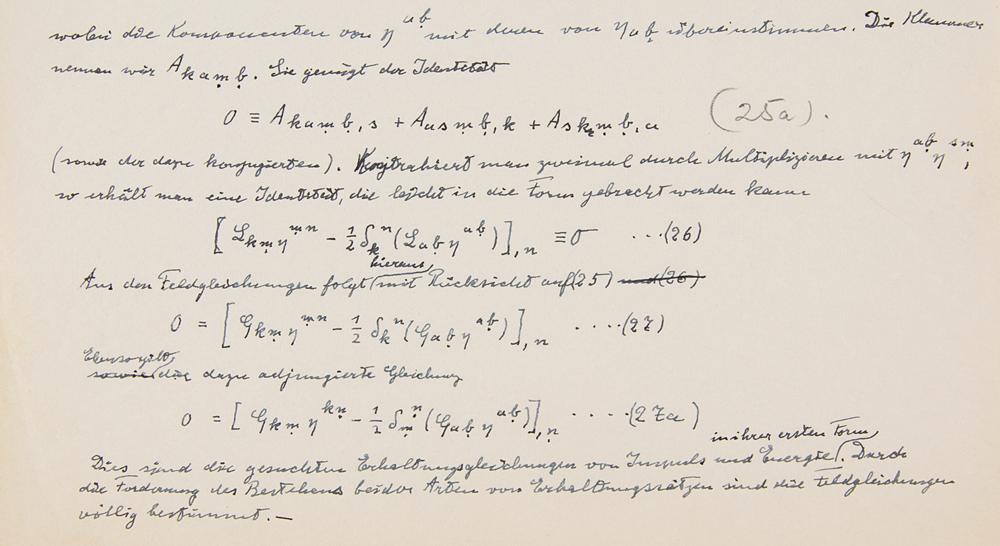 wobei die Komponenten von η^{aḅ} mit denen von η_{aḅ} übereinstimmen. Die Klammer
nennen wir A_{kaṃḅ}. Sie genügt der Identität
0 ≡ A_{kaṃḅ,s} + A_{asṃḅ,k} + A_{skṃḅ,a} (25a).
(sowie der dazu konjugierten). Kontrahiert man zweimal durch Multiplizieren mit η^{aḅ} η^{sṃ},
so erhält man eine Identität, die leicht in die Form gebracht werden kann
[L_{kṃ} η^{ṃn} - 1/2 δ_k^n (L_{aḅ} η^{aḅ})]_{,n} ≡ 0 ...(26)
hieraus
Aus den Feldgleichungen folgt mit Rücksicht auf (25) und (26)
0 = [G_{kṃ} η^{ṃn} - 1/2 δ_k^n (G_{aḅ} η^{aḅ})]_{,n} ....(27)
Ebenso gilt
sowie die dazu adjungierte Gleichung
0 = [G_{kṃ} η^{kṇ} - 1/2 δ_ṃ^ṇ (G_{aḅ} η^{aḅ})]_{,ṇ} ....(27a)
in ihrer ersten Form
Dies sind die gesuchten Erhaltungsgleichungen von Impuls und Energie. Durch
die Forderung des Bestehens beider Arten von Erhaltungssätzen sind die Feldgleichungen
völlig bestimmt. —